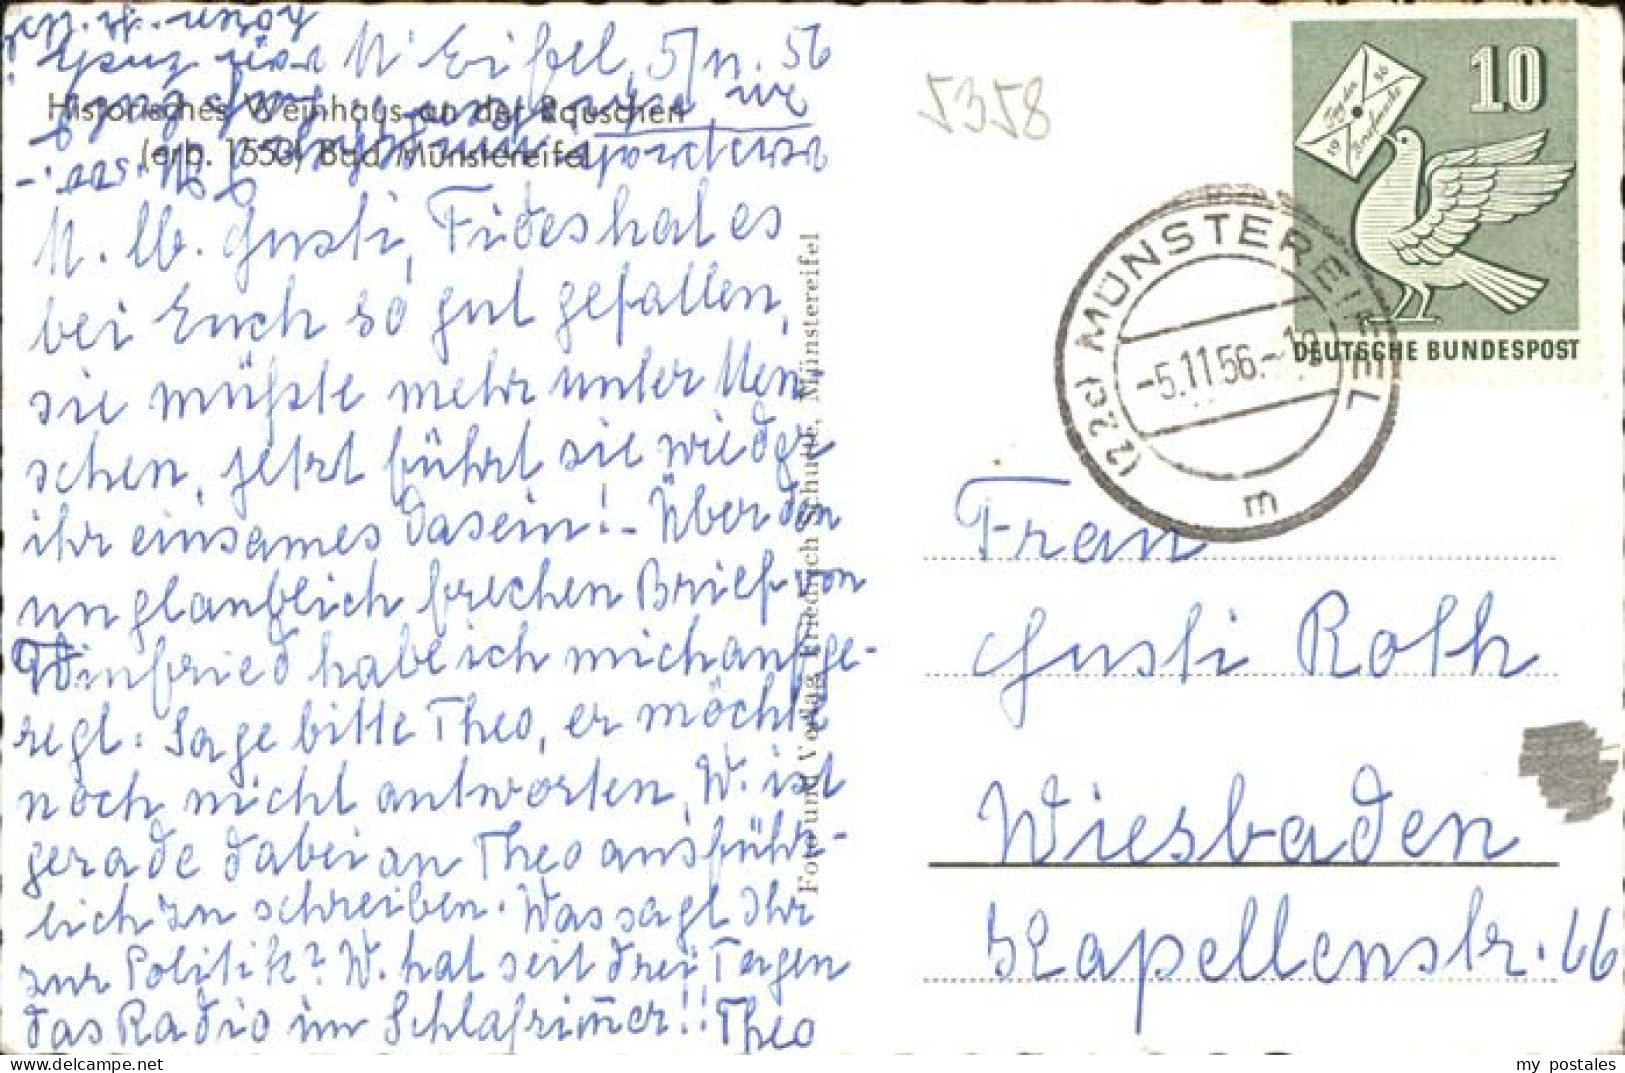 M' Eifel, 5/11. 56
Historisches Weinhaus an der Rauschen
(erb. 1553) Bad Münstereifel
M. lb. Gusti, Fides hat es
bei Euch so gut gefallen,
sie müßte mehr unter Men,
schen, jetzt führt sie wieder
ihr einsames Dasein! - Über den
unglaublich frechen Brief von
Winfried habe ich mich aufge-
regt. Sage bitte Theo, er möchte
noch nicht antworten, W. ist
gerade dabei an Theo ausführ-
lich zu schreiben. Was sagt Ihr
zur Politik? W. hat seit drei Tagen
das Radio im Schlafzim̄er!! Theo
Foto und Verlag Friedrich Schulte, Münstereifel
5358
10
Tag der
Briefmarke
19 56
DEUTSCHE BUNDESPOST
(22c) MÜNSTEREIFEL
-5.11.56.-
m
Frau
Gusti Roth
Wiesbaden
Kapellenstr. 66
my postales